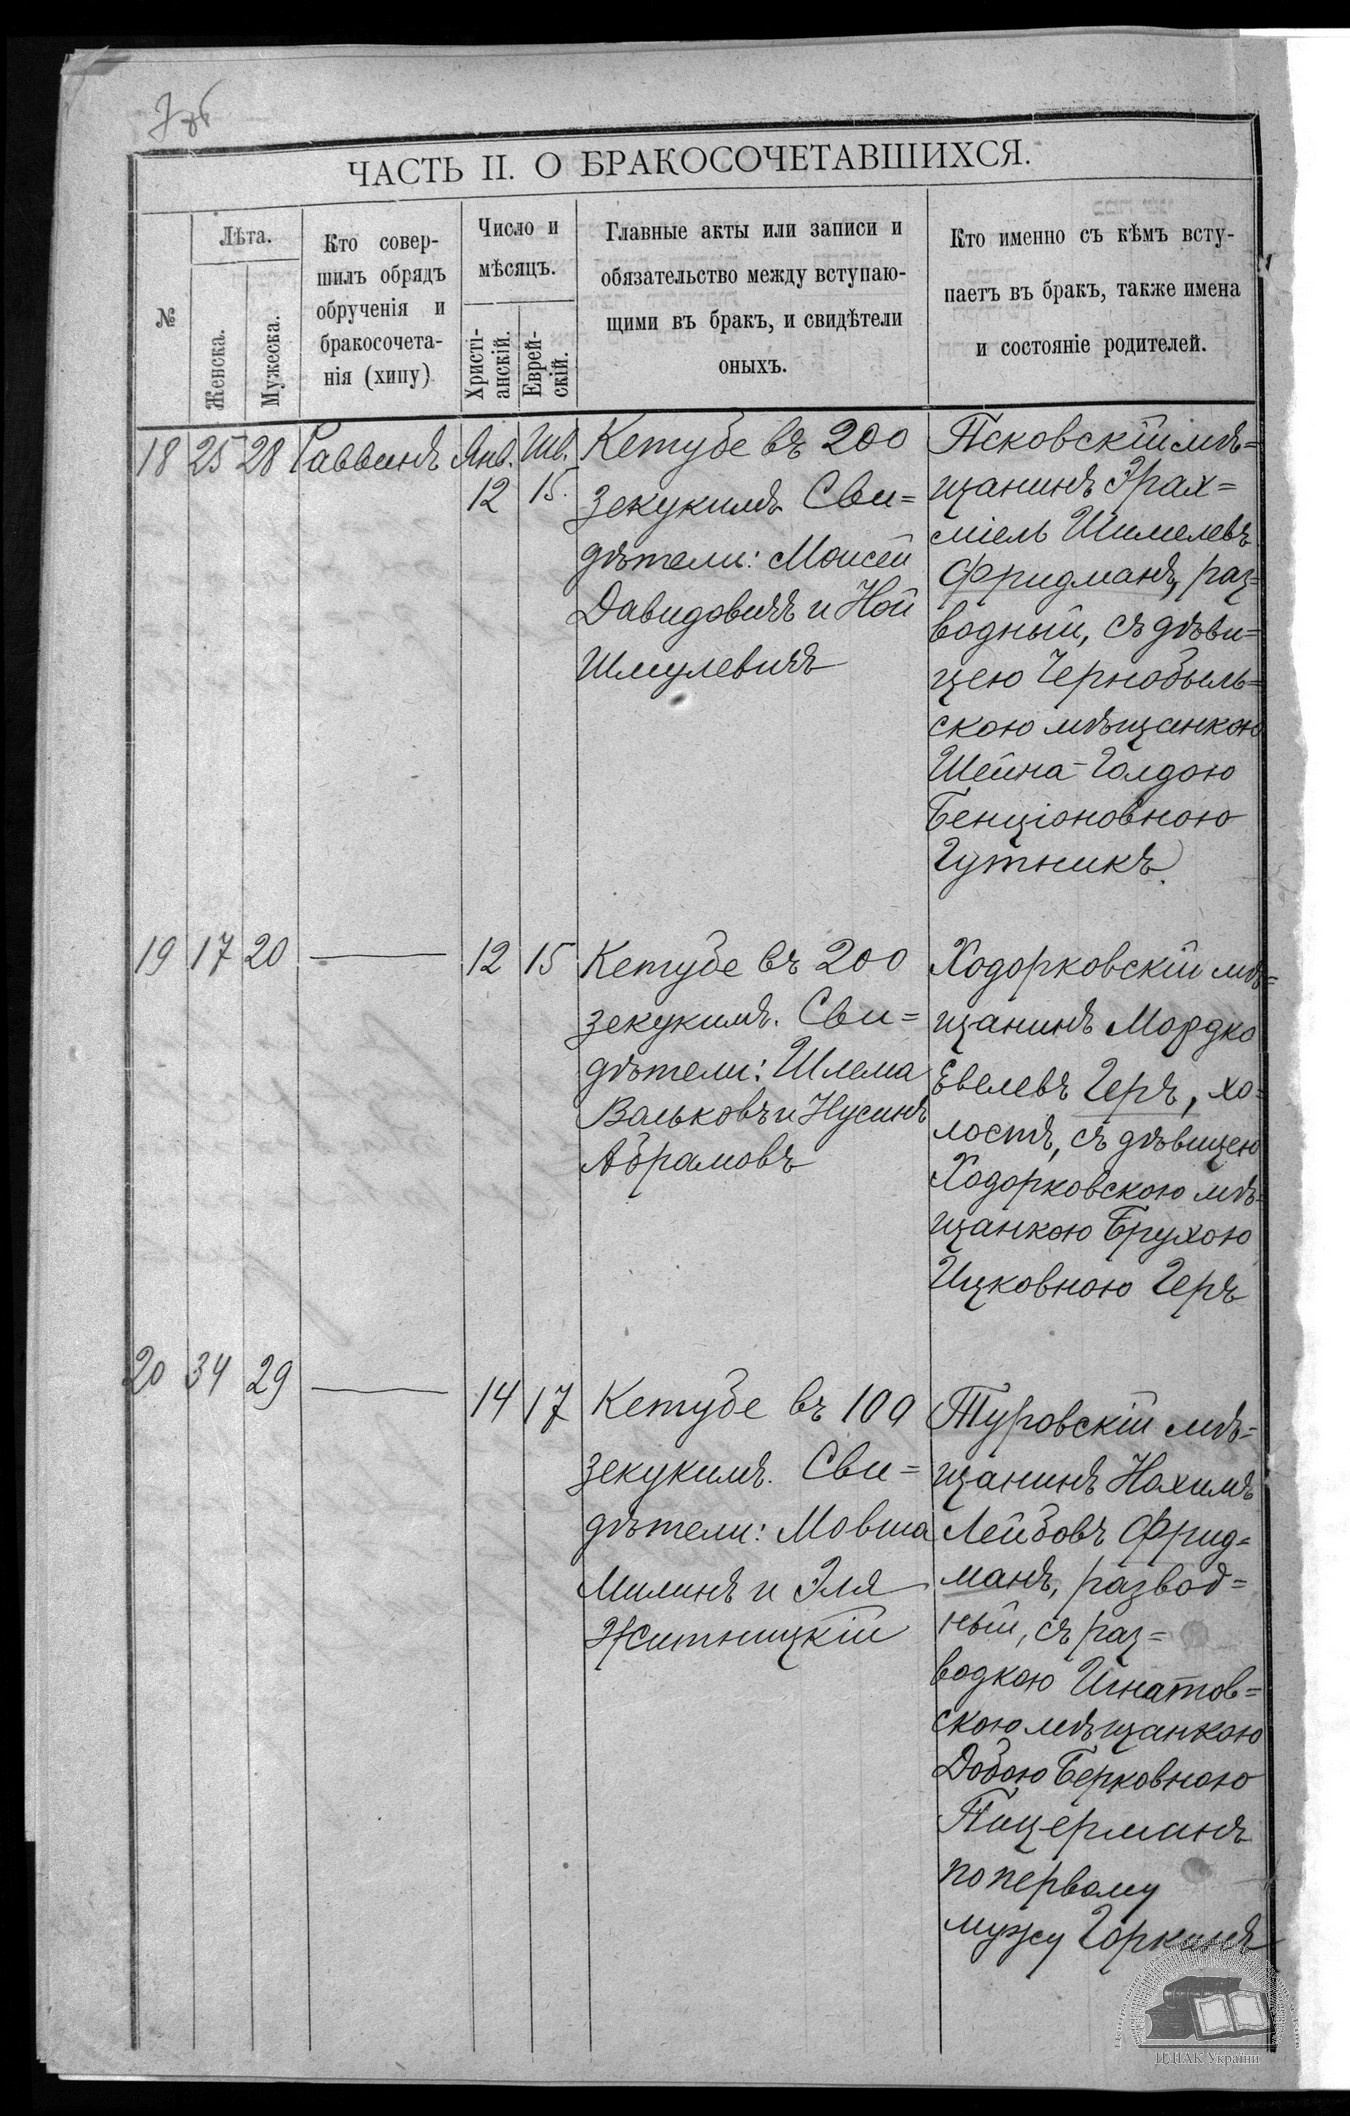 ЧАСТЬ II. О БРАКОСОЧЕТАВШИХСЯ.
№
Лѣта.
Женска.
Мужеска.
Кто совер-
шилъ обрядъ
обрученія и
бракосочета-
нія (хипу)
Число и
мѣсяцъ.
Христі-
анскій.
Еврей-
скій.
Главные акты или записи и
обязательство между вступаю-
щими въ бракъ, и свидѣтели
оныхъ.
Кто именно съ кѣмъ всту-
паетъ въ бракъ, также имена
и состояніе родителей.
18 25 28 Раввинъ Янв. Шв.
12 15.
Кетубе въ 200
зекукимъ Сви=
дѣтели: Моисей
Давидовичъ и Ной
Шмулевичъ
Псковскій мѣ=
щанинъ Эрах=
міель Шимелевъ
Фридманъ, раз=
водный, съ дѣви=
цею Чернобыль=
скою мѣщанкою
Шейна-Голдою
Бенціоновною
Гутникъ.
19 17 20 — 12 15
Кетубе въ 200
зекукимъ. Сви=
дѣтели: Шлема
Вольковъ и Нусинъ
Абрамовъ
Ходорковскій мѣ=
щанинъ Мордко
Евелевъ Геръ, хо=
лостъ, съ дѣвицею
Ходорковскою мѣ=
щанкою Брухою
Ицковною Геръ
20 34 29 — 14 17
Кетубе въ 100
зекукимъ. Сви=
дѣтели: Мовша
Милинъ и Эля
Житницкій
Туровскій мѣ=
щанинъ Нохимъ
Лейбовъ Фрид=
манъ, развод=
ный, съ раз=
водкою Игнатов=
скою мѣщанкою
Добою Берковною
Пицерманъ
по первому
мужу Горкинъ
ЦДІАК України